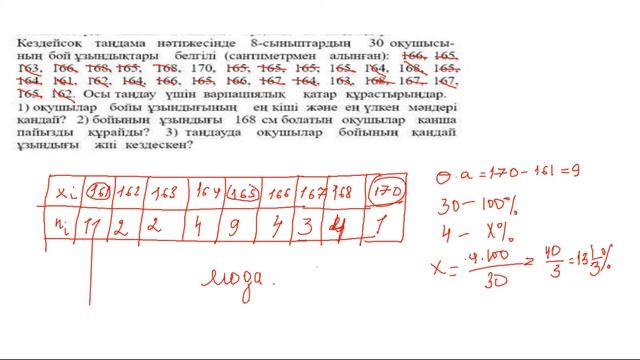 Кездейсоқ таңдама нәтижесінде 8-сыныптардың 30 оқушысы-
ның бой ұзындықтары белгілі (сантиметрмен алынған): 166, 165,
163, 166, 168, 165, 168, 170, 165, 165, 165, 165, 164, 168, 165,
164, 161, 162, 164, 166, 165, 166, 167, 164, 163, 168, 167, 167,
165, 162. Осы таңдау үшін варпациялық қатар құрастырыңдар.
1) оқушылар бойы ұзындығының ең кіші және ең үлкен мәндері
қандай? 2) бойының ұзындығы 168 см болатын оқушылар қанша
пайызды құрайды? 3) таңдауда оқушылар бойының қандай
ұзындығы жпі кездескен?
xi 161 162 163 164 165 166 167 168 170
ni 1 2 2 4 9 4 3 4 1
мода.
Ө.а = 170 - 161 = 9
30 - 100%
4 - x%
x = 4·100/30 = 40/3 = 13 1/3 %